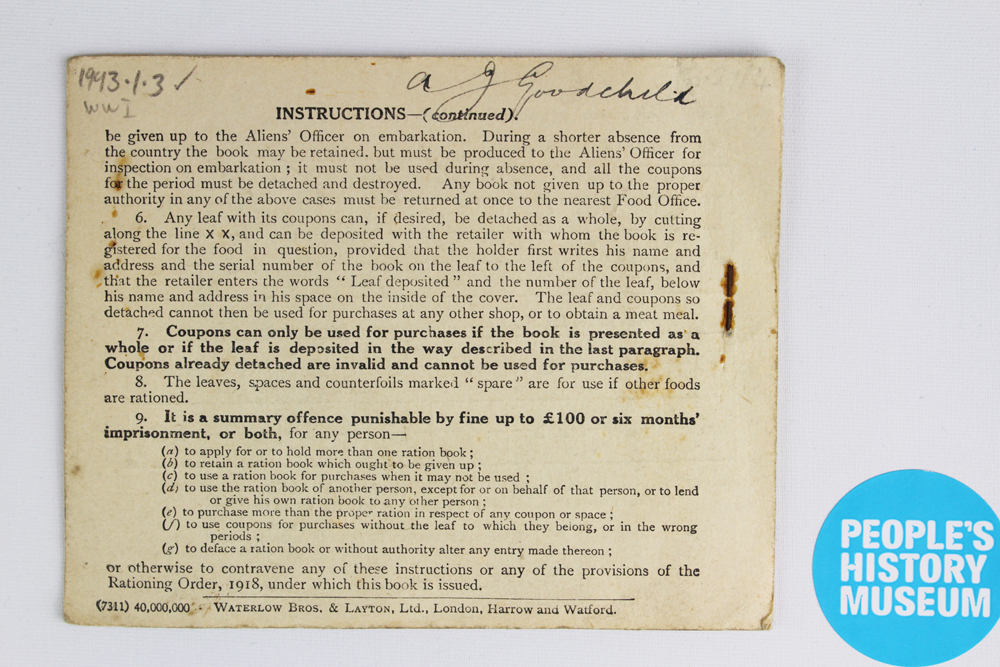 1993.1.3
WWI
A J Goodchild
INSTRUCTIONS—(continued).
be given up to the Aliens' Officer on embarkation. During a shorter absence from
the country the book may be retained, but must be produced to the Aliens' Officer for
inspection on embarkation; it must not be used during absence, and all the coupons
for the period must be detached and destroyed. Any book not given up to the proper
authority in any of the above cases must be returned at once to the nearest Food Office.
6. Any leaf with its coupons can, if desired, be detached as a whole, by cutting
along the line x x, and can be deposited with the retailer with whom the book is re-
gistered for the food in question, provided that the holder first writes his name and
address and the serial number of the book on the leaf to the left of the coupons, and
that the retailer enters the words "Leaf deposited" and the number of the leaf, below
his name and address in his space on the inside of the cover. The leaf and coupons so
detached cannot then be used for purchases at any other shop, or to obtain a meat meal.
7. Coupons can only be used for purchases if the book is presented as a
whole or if the leaf is deposited in the way described in the last paragraph.
Coupons already detached are invalid and cannot be used for purchases.
8. The leaves, spaces and counterfoils marked "spare" are for use if other foods
are rationed.
9. It is a summary offence punishable by fine up to £100 or six months'
imprisonment, or both, for any person—
(a) to apply for or to hold more than one ration book;
(b) to retain a ration book which ought to be given up;
(c) to use a ration book for purchases when it may not be used;
(d) to use the ration book of another person, except for or on behalf of that person, or to lend
or give his own ration book to any other person;
(e) to purchase more than the proper ration in respect of any coupon or space;
(f) to use coupons for purchases without the leaf to which they belong, or in the wrong
periods;
(g) to deface a ration book or without authority alter any entry made thereon;
or otherwise to contravene any of these instructions or any of the provisions of the
Rationing Order, 1918, under which this book is issued.
(7311) 40,000,000 - WATERLOW BROS. & LAYTON, Ltd., London, Harrow and Watford.
PEOPLE'S
HISTORY
MUSEUM